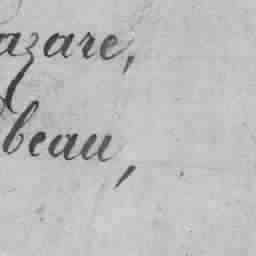 azare,
beau,